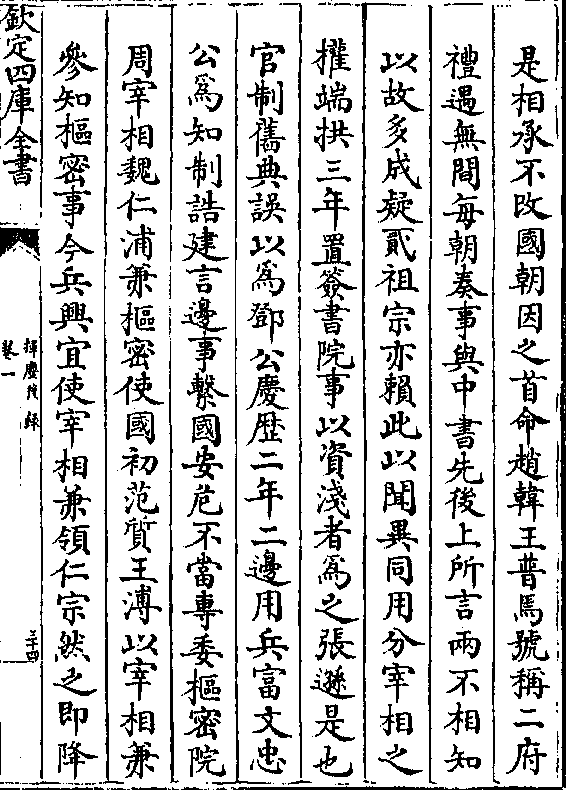 是相承不改國朝因之首命趙韓王普焉號稱二府
禮遇無間每朝奏事與中書先後上所言兩不相知
以故多成疑貳祖宗亦賴此以聞異同用分宰相之
權端拱三年置簽書院事以資淺者爲之張遜是也
官制舊典誤以爲鄧公慶歴二年二邊用兵富文忠
公爲知制誥建言邊事繫國安危不當專委樞密院
周宰相魏仁浦兼樞密使國初范質王溥以宰相兼
參知樞密事今兵興宜使宰相兼領仁宗然之即降
欽定四庫全書
揮麈後錄
卷一
三十四